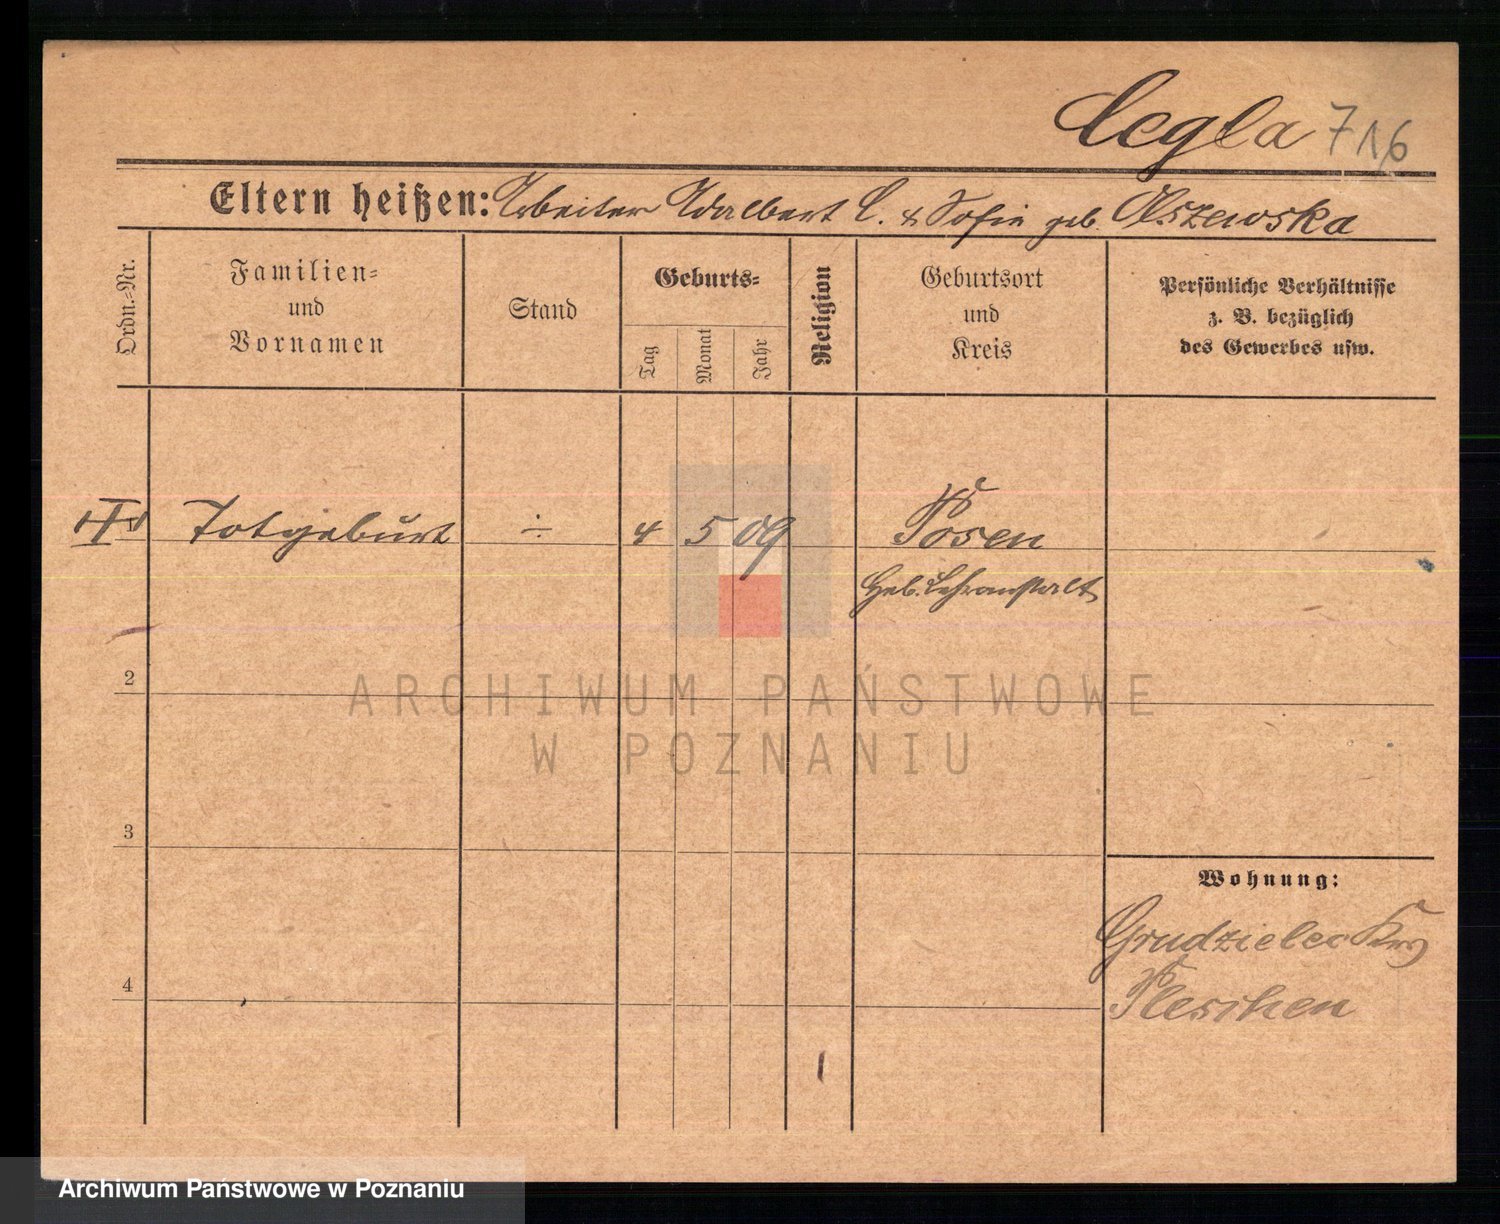 Cegla 716
Eltern heißen: Arbeiter Adalbert C. & Sofie geb. Olszewska
Ordn.=Nr.
Familien=
und
Vornamen
Stand
Geburts=
Tag
Monat
Jahr
Religion
Geburtsort
und
Kreis
Persönliche Verhältnisse
z. B. bezüglich
des Gewerbes usw.
Totgeburt ÷ 4 5 09 Posen
Heb. Lehranstalt
2
ARCHIWUM PAŃSTWOWE
W POZNANIU
3
Wohnung:
Grudzielec Krs
4
Pleschen
Archiwum Państwowe w Poznaniu